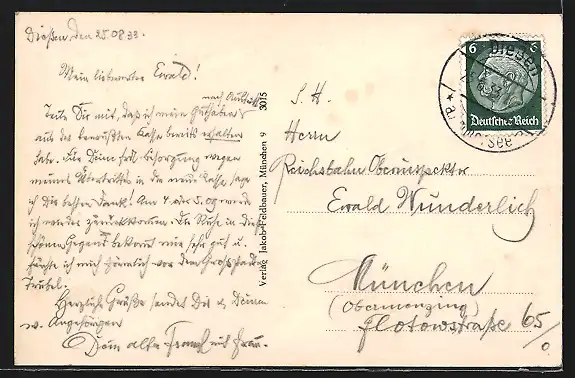 Dießen den 25.08.33.
Mein liebwerter Ewald!
nach Auskunft
Teile Dir mit, daß ich mein Guthaben
aus der bewußten Kasse bereits erhalten
habe. Für Deine Besorgung wegen
meines Übertritts in die neue Kasse sage
ich Dir besten Dank! Am 4. oder 5.09 werde
ich wieder zurückkommen. Die Ruhe in dieser
schönen Gegend bekommt mir sehr gut u.
fürchte ich mich förmlich vor dem Großstadt
Trubel.
Herzliche Grüße sendet Dir u. Deinen
w. Angehörigen
Dein alter Freund mit Frau.
Verlag Jakob Feldhauer, München 9 3015
S. H.
Herrn
Reichsbahn Oberinspektor
Ewald Wunderlich
München
(Obermenzing)
Flotowstraße 65/0
6 6
Deutsches Reich
Dießen